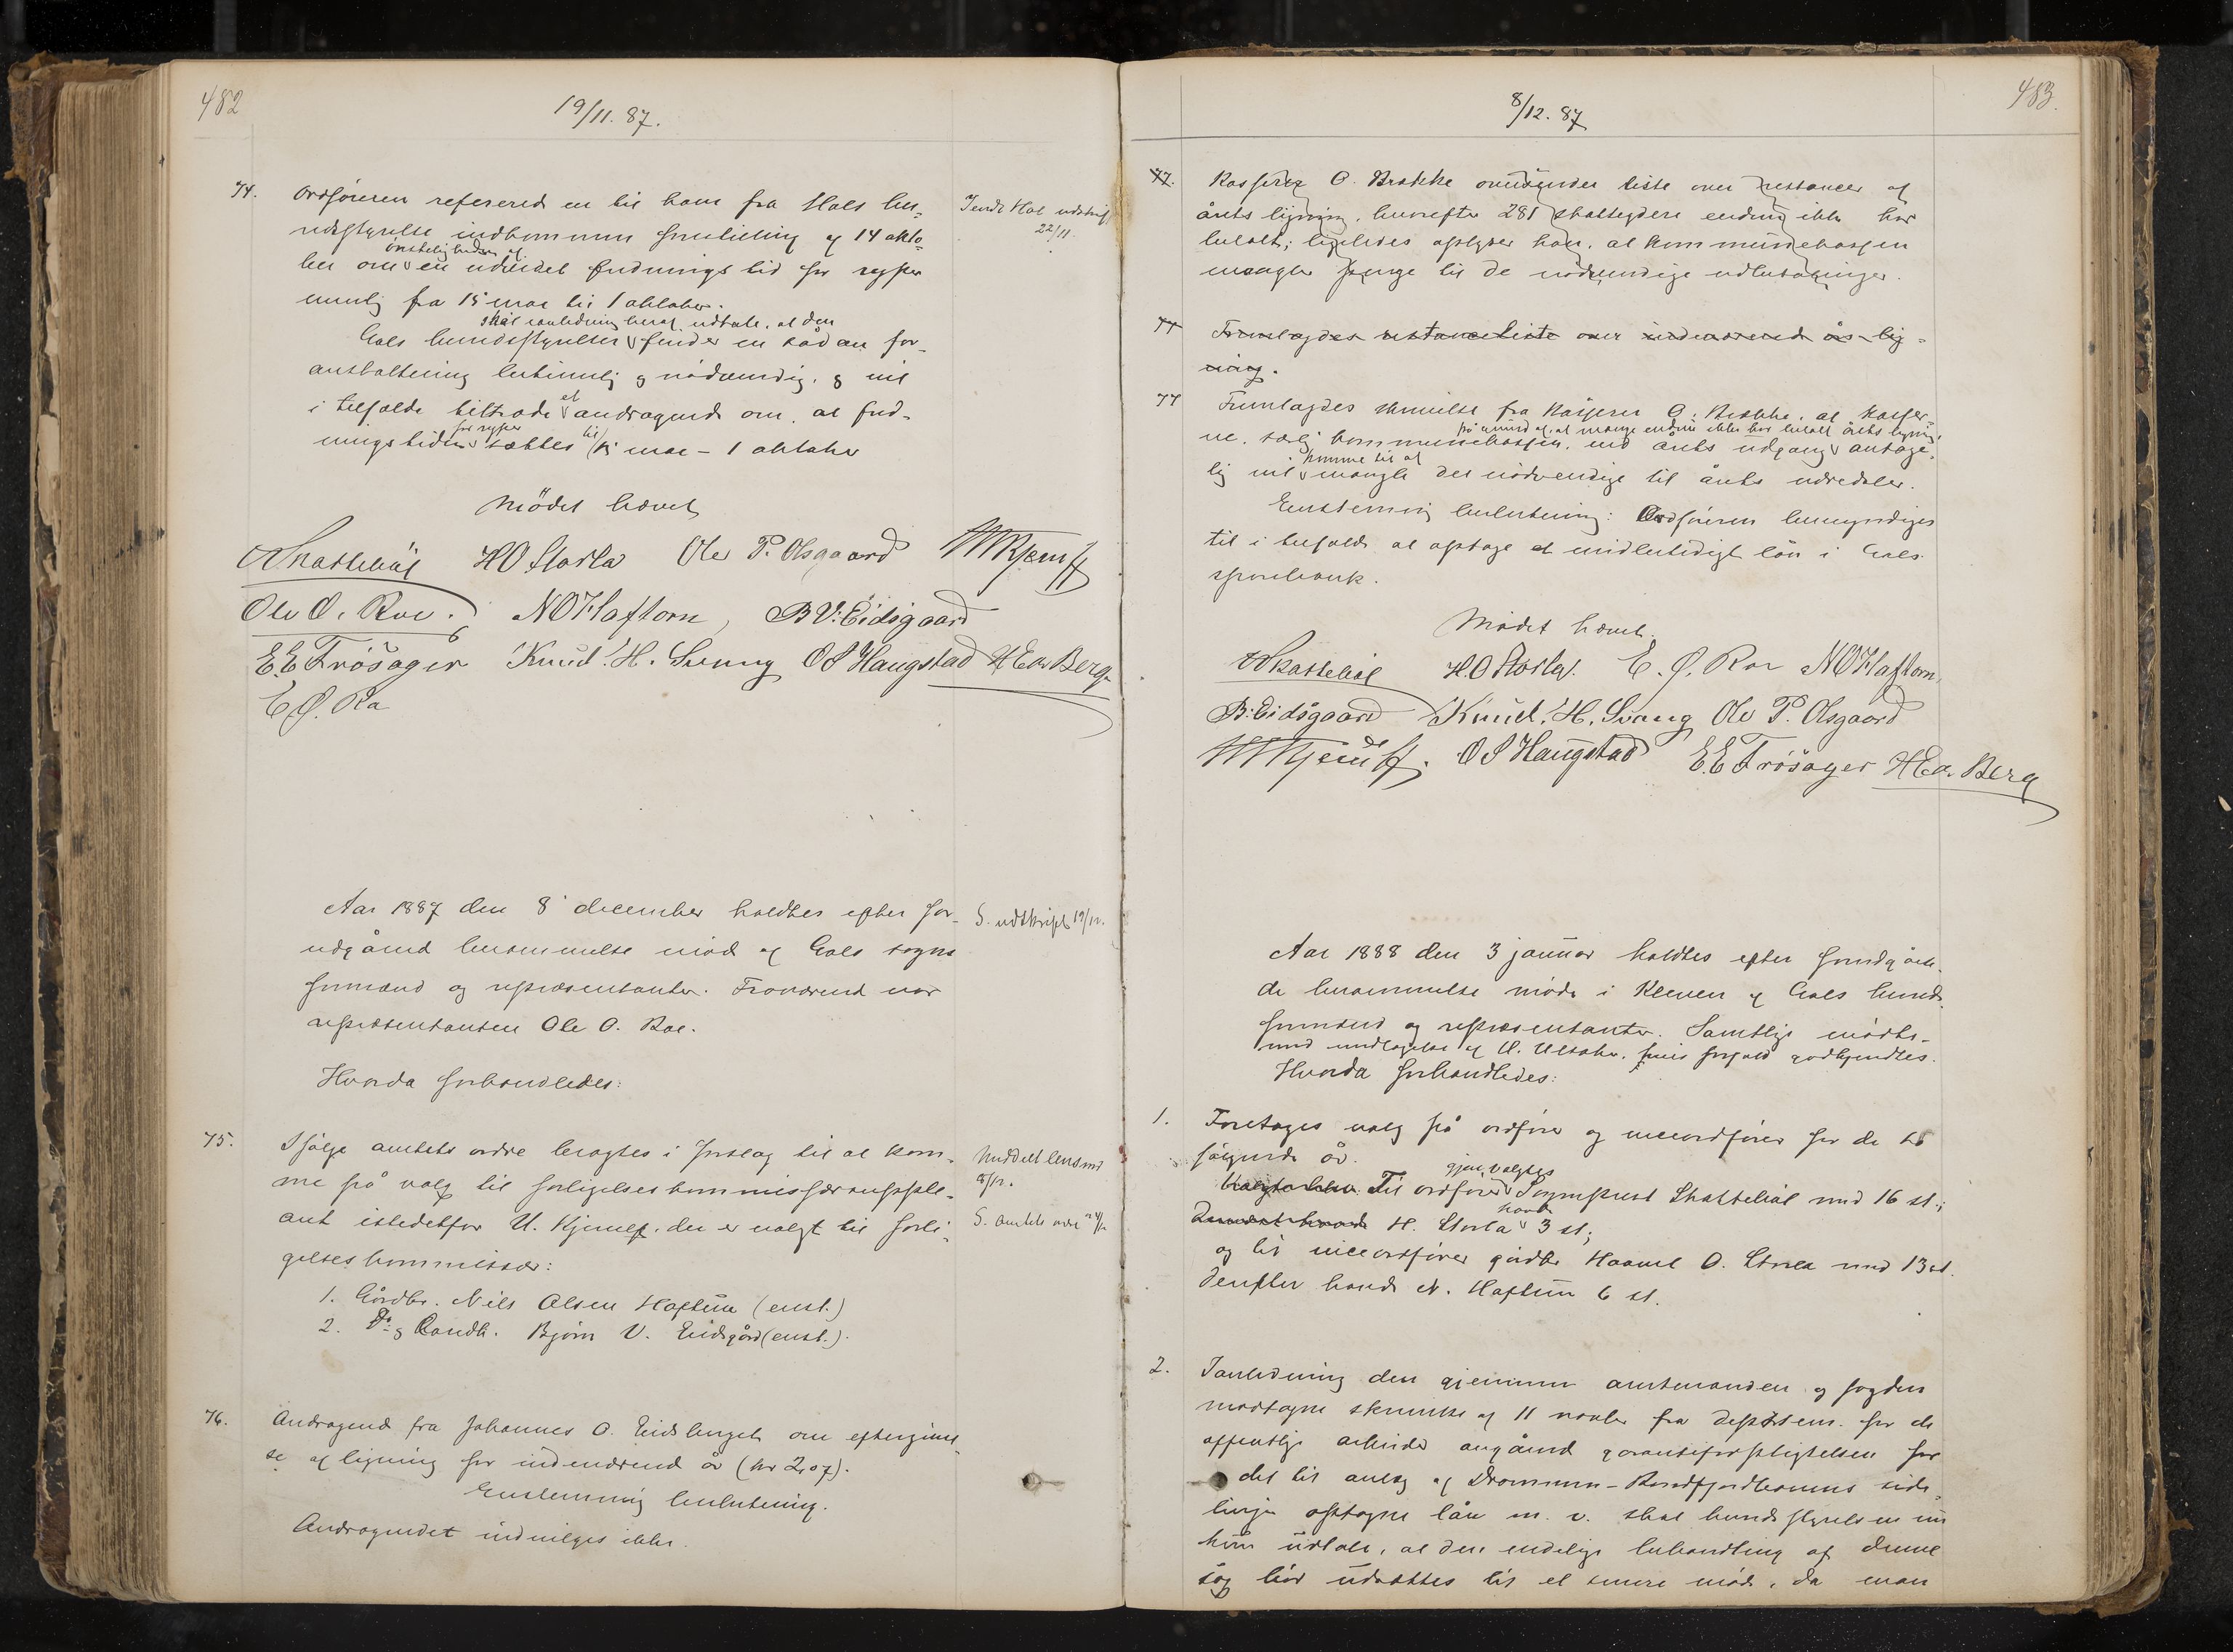 482
19/11. 87.
74. Ordføreren refererede en til ham fra Hols her-
redsstyrelse indkommen forestilling af 14 okto-
ønskeligheden af
ber om en udvidet fredningstid for ryper
nemlig fra 15 mar til 1 oktober.
skal i anledning heraf udtale, at den
Gols herredsstyrelse finder en sådan for-
anstaltning betimelig og nødvendig, og vil
et
i tilfælde tiltræde andragende om, at fred-
for ryper til
ningstiden sættes 15 mar – 1 oktober
Mødet hævet
Skattebøl HO Storla Ole P. Olsgaard
Ole O. Roe. NO Haftorn, B V. Eidsgaard
E.E Trøsåger Knud. H. Svang O S Haugstad H Ed. Berg
E Ø. Ro
Sendt Hol udskrift
22/11.
Aar 1887 den 8 december holdtes efter for-
udgående berammelse møde af Gols sogns
formænd og repræsentanter. Fraværende var
repræsentanten Ole O. Roe.
Hvorda forhandledes:
S. udskrift 19/12.
75. Ifølge amtets ordre bragtes i forslag til at kom-
me på valg til forligelseskommissærsupple-
ant istedetfor U. Kjemp, der er valgt til forli-
gelseskommissær:
1. Gårdbr. Nils Olsen Haftun (enst.)
2. Do. og Landh. Bjørn V. Eidsgård (enst.).
Meddelt lensmd
S. amtets ordre
76. Andragende fra Johannes O. Eidsbrget om eftergivel-
se af ligning for indeværende år (kr 2,07).
Enstemmig beslutning.
Andragendet indvilges ikke.
8/12. 87
483.
77. Kasserer O. Brække oversender liste over restancer af
årets ligning, hvorefter 281 skatteydere endnu ikke har
betalt; ligeledes oplyser han, at kommunekassen
mangler penge til de nødvendige udbetalinger.
77 Fremlagdes restanceliste over indeværende års lig-
ning.
77 Fremlagdes skrivelse fra kasserer O. Brække, at kasser-
på grund af, at mange endnu ikke har betalt årets ligning,
ne, særlig kommunekassen, ved årets udgang antage-
komme til at
lig vil mangle det nødvendige til årets udredsler.
Enstemmig beslutning: Ordføreren bemyndiges
til i tilfælde at optage et midlertidigt lån i Gols
sparebank.
Mødet hævet.
Skattebøl H.O Storla. E. Ø. Roe NO Haftorn,
B. Eidsgaard Knud. H. Svang Ole P. Olsgaard
O S Haugstad E.E Trøsåger H Ed. Berg
Aar 1888 den 3 januar holdtes efter forudgåen-
de berammelse møde i Kleven af Gols herreds
formænd og repræsentanter. Samtlige mødte-
med undtagelse af U. Ulsaker, hvis forfald godkjendtes.
Hvorda forhandledes:
1. Foretages valg på ordfører og viceordfører for de to
følgende år.
gjenvalgtes
Til ordfører Sogneprest Skattebøl med 16 st.;
havde
H. Storla 3 st;
og til viceordfører gårdbr Haavel O. Storla med 13 st.
Derefter havde N. Haftun 6 st.
2. I anledning den gjennem amtmanden og fogden
modtagne skrivelse af 11 novbr fra departem. for de
offentlige arbeider angående garantiforpligtelsen for
det til anlæg af Drammen–Randsfjordbanens side-
linje optagne lån m. v. skal herredsstyrelsen
kun udtale, at den endelige behandling af denne
sag bør udsættes til et senere møde, da man